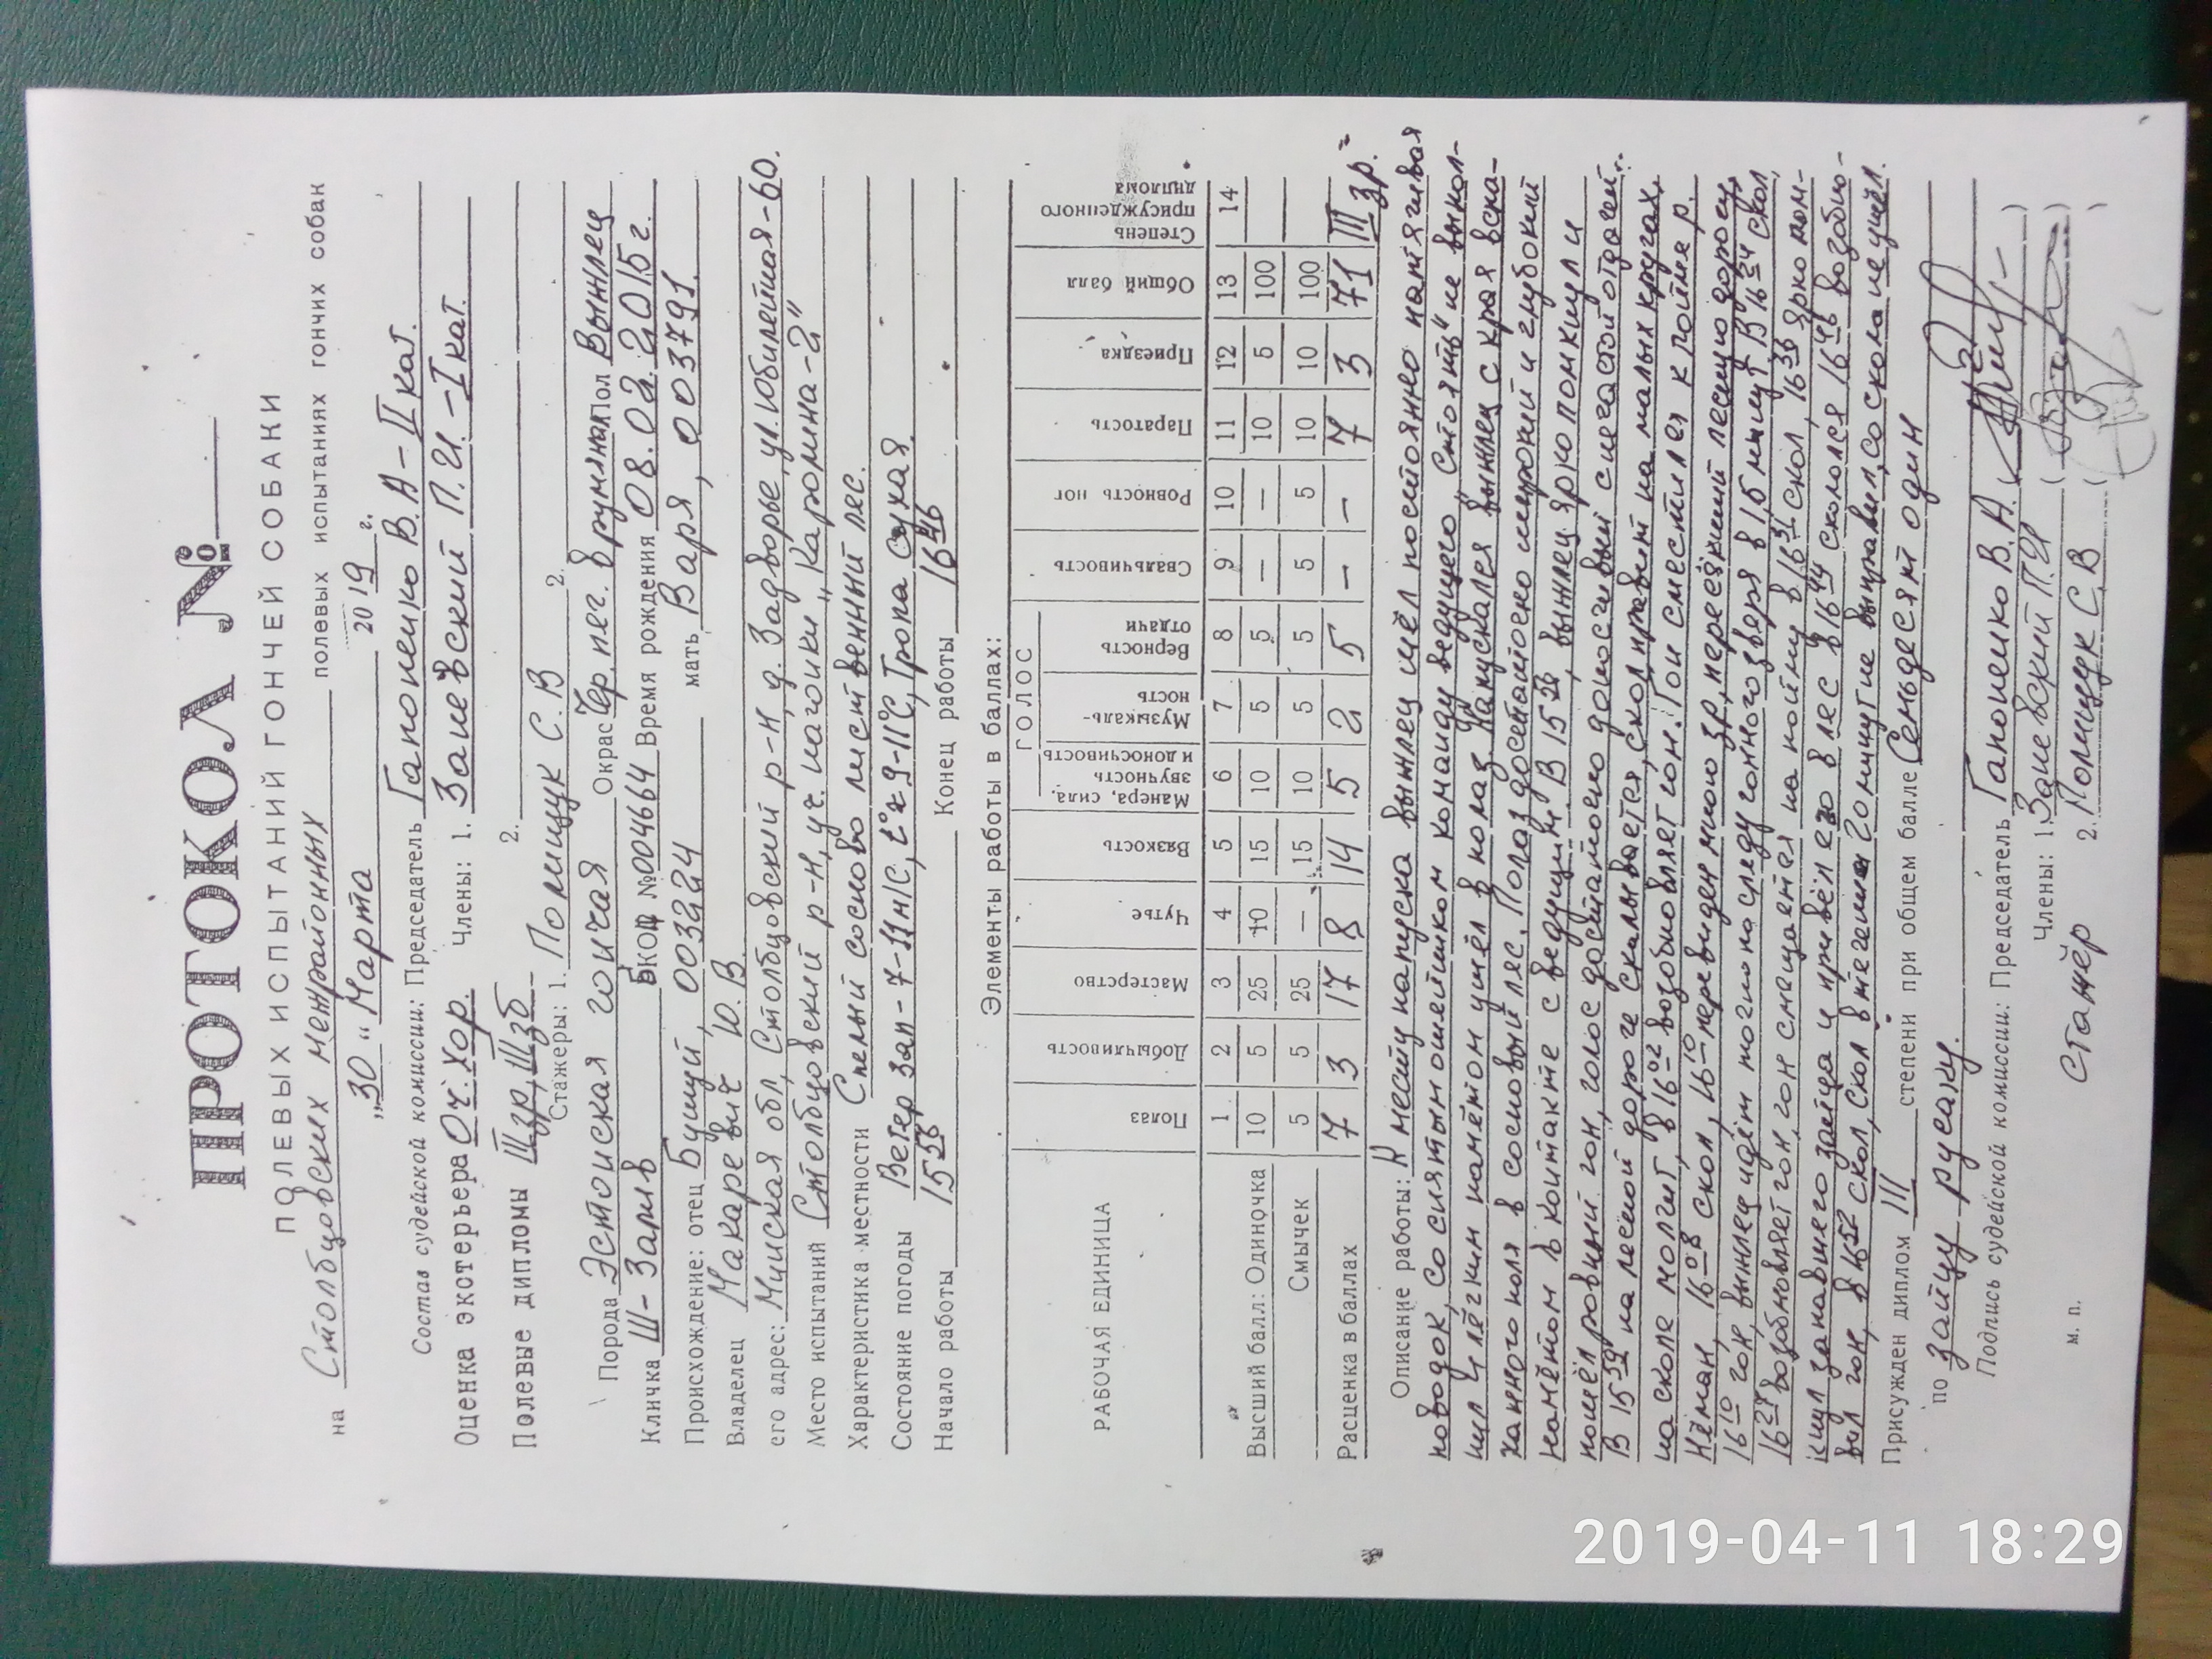 ПРОТОКОЛ №
ПОЛЕВЫХ ИСПЫТАНИЙ ГОНЧЕЙ СОБАКИ
на Столбцовских межрайонных полевых испытаниях гончих собак
„30“ Марта 2019 г.
Состав судейской комиссии: Председатель Гапоненко В.А – II кат.
Оценка экстерьера Оч. Хор. Члены: 1. Заневский П.И. – I кат.
Полевые дипломы IIIзр, IIIзб 2.
Стажеры: 1. Полищук С.В 2.
Порода Эстонская гончая Окрас Чер. пег. в румянах Пол Выжлец
Кличка Ш-Залив БКОЦ №004664 Время рождения 08.02.2015г.
Происхождение: отец Бушуй, 003224 мать Варя, 003791.
Владелец Макаревич Ю.В.
его адрес: Минская обл, Столбцовский р-н, д. Задворье, ул. Юбилейная-60.
Место испытаний Столбцовский р-н, уч. нагонки „Каролина-2“
Характеристика местности Спелый сосново лиственный лес.
Состояние погоды Ветер зап-7-11м/с, t°≈9-11°С, Тропа сухая.
Начало работы 15 Конец работы 16 46
Элементы работы в баллах:
РАБОЧАЯ ЕДИНИЦА Полаз Добычливость Мастерство Чутье Вязкость ГОЛОС Манера, сила, звучность и доносчивость Музыкальность Верность отдачи Свальчивость Ровность ног Паратость Приездка Общий балл Степень присужденного диплома
1 2 3 4 5 6 7 8 9 10 11 12 13 14
Высший балл: Одиночка 10 5 25 10 15 10 5 5 — — 10 5 100
Смычек 5 5 25 — 15 10 5 5 5 5 10 10 100
Расценка в баллах 7 3 17 8 14 5 2 5 – – 7 3 71 III зр.
Описание работы: К месту напуска выжлец шёл постоянно натягивая
поводок, со снятым ошейником команду ведущего „Стоять“ не выпол-
нил и лёгким намётом ушёл в полаз. Напускался выжлец с края вспа-
ханного поля в сосновый лес. Полаз достаточно широкий и глубокий
намётом в контакте с ведущим. В 15 , выжлец ярко помкнул и
повёл ровный гон, голос достаточно доносчивый с частой отдачей.
В 15 59 на лесной дороге скалывается, скол правит на малых кругах,
на сколе молчит, в 16 02 возобновляет гон. Гон сместился к пойме р.
Нёман, 16 08 скол, 16 10 перевиден мною зр, пересёкший лесную дорогу,
16 10 гон, выжлец идёт по следу гонного зверя в 1,5 минут. В 16 24 скол
16 27 возобновляет гон, гон смещается на пойму в 16 31 скол, 16 36 ярко пом-
кнул запавшего зайца и привёл его в лес в 16 44 скололся 16 46 возобно-
вил гон, в 16 52 скол, скол в течении 20 минут не выправил, со скола не ушёл.
Присужден диплом III степени при общем балле Семьдесят один
по зайцу русаку.
Подпись судейской комиссии: Председатель Гапоненко В.А. ( )
Члены: 1. Заневский П.И ( )
Стажёр 2. Полищук С.В ( )
м. п.
2019-04-11 18:29